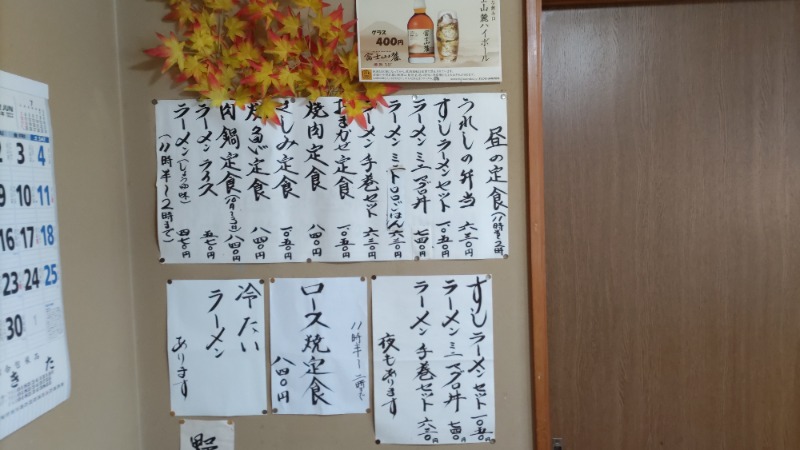 士山麓ハイボール
グラス
400円
富士山麓
昼の定食(11時~2時
うれしの弁当 六三〇円
すしラーメンセット 一〇五〇円
ラーメンミニマグロ丼 七四〇円
ラーメンミニトロロごはん 六三〇円
ラーメン手巻セット 六三〇円
おまかせ定食 一〇五〇円
焼肉定食 八四〇円
さしみ定食 一〇五〇円
焼魚定食 八四〇円
肉鍋定食 八四〇円
ラーメンライス 五七〇円
ラーメン(しょうゆ味) 四七〇円
(11時半~2時まで)
冷たい
ラーメン
あります
11時半~二時まで
ロース焼定食
八四〇円
すしラーメンセット 一〇五〇
ラーメンミニマグロ丼 七四〇円
ラーメン手巻セット 六三〇円
夜もあります
JUN
2 3 4
9 10 11
16 17 18
23 24 25
30
きた